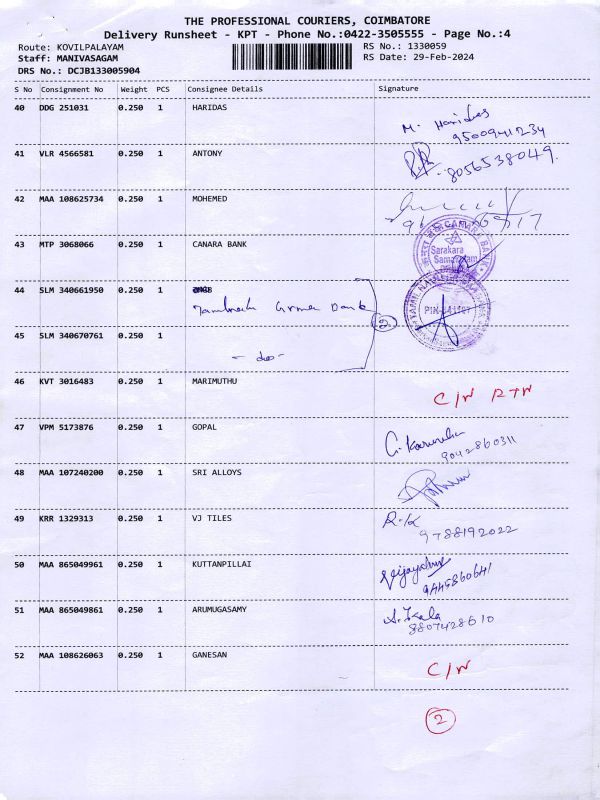 THE PROFESSIONAL COURIERS, COIMBATORE
Delivery Runsheet - KPT - Phone No.:0422-3505555 - Page No.:4
Route: KOVILPALAYAM RS No.: 1330059
Staff: MANIVASAGAM RS Date: 29-Feb-2024
DRS No.: DCJB133005904
S No Consignment No Weight PCS Consignee Details Signature
40 DDG 251031 0.250 1 HARIDAS
M. Haridas
9500941234
41 VLR 4566581 0.250 1 ANTONY
8056538049.
42 MAA 108625734 0.250 1 MOHEMED
43 MTP 3068066 0.250 1 CANARA BANK
CANARA BANK
Sarakara
44 SLM 340661950 0.250 1
Bank
2
TAMIL
45 SLM 340670761 0.250 1
- do -
46 KVT 3016483 0.250 1 MARIMUTHU
C/N RTN
47 VPM 5173876 0.250 1 GOPAL
9042860311
48 MAA 107240200 0.250 1 SRI ALLOYS
49 KRR 1329313 0.250 1 VJ TILES
9788192022
50 MAA 865049961 0.250 1 KUTTANPILLAI
9445860641
51 MAA 865049861 0.250 1 ARUMUGASAMY
A. Kala
8807428610
52 MAA 108626063 0.250 1 GANESAN
C/N
2